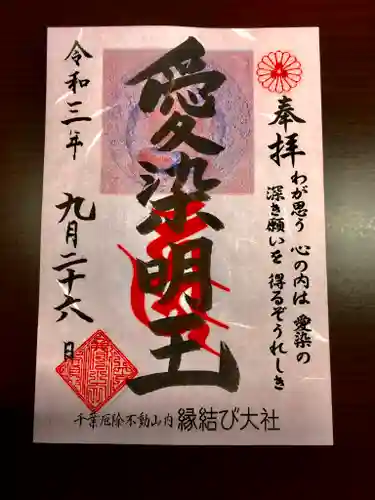 奉拝
わが思う 心の内は 愛染の
深き願いを 得るぞうれしき
愛染明王
令和三年 九月二十六日
千葉厄除不動山内 縁結び大社